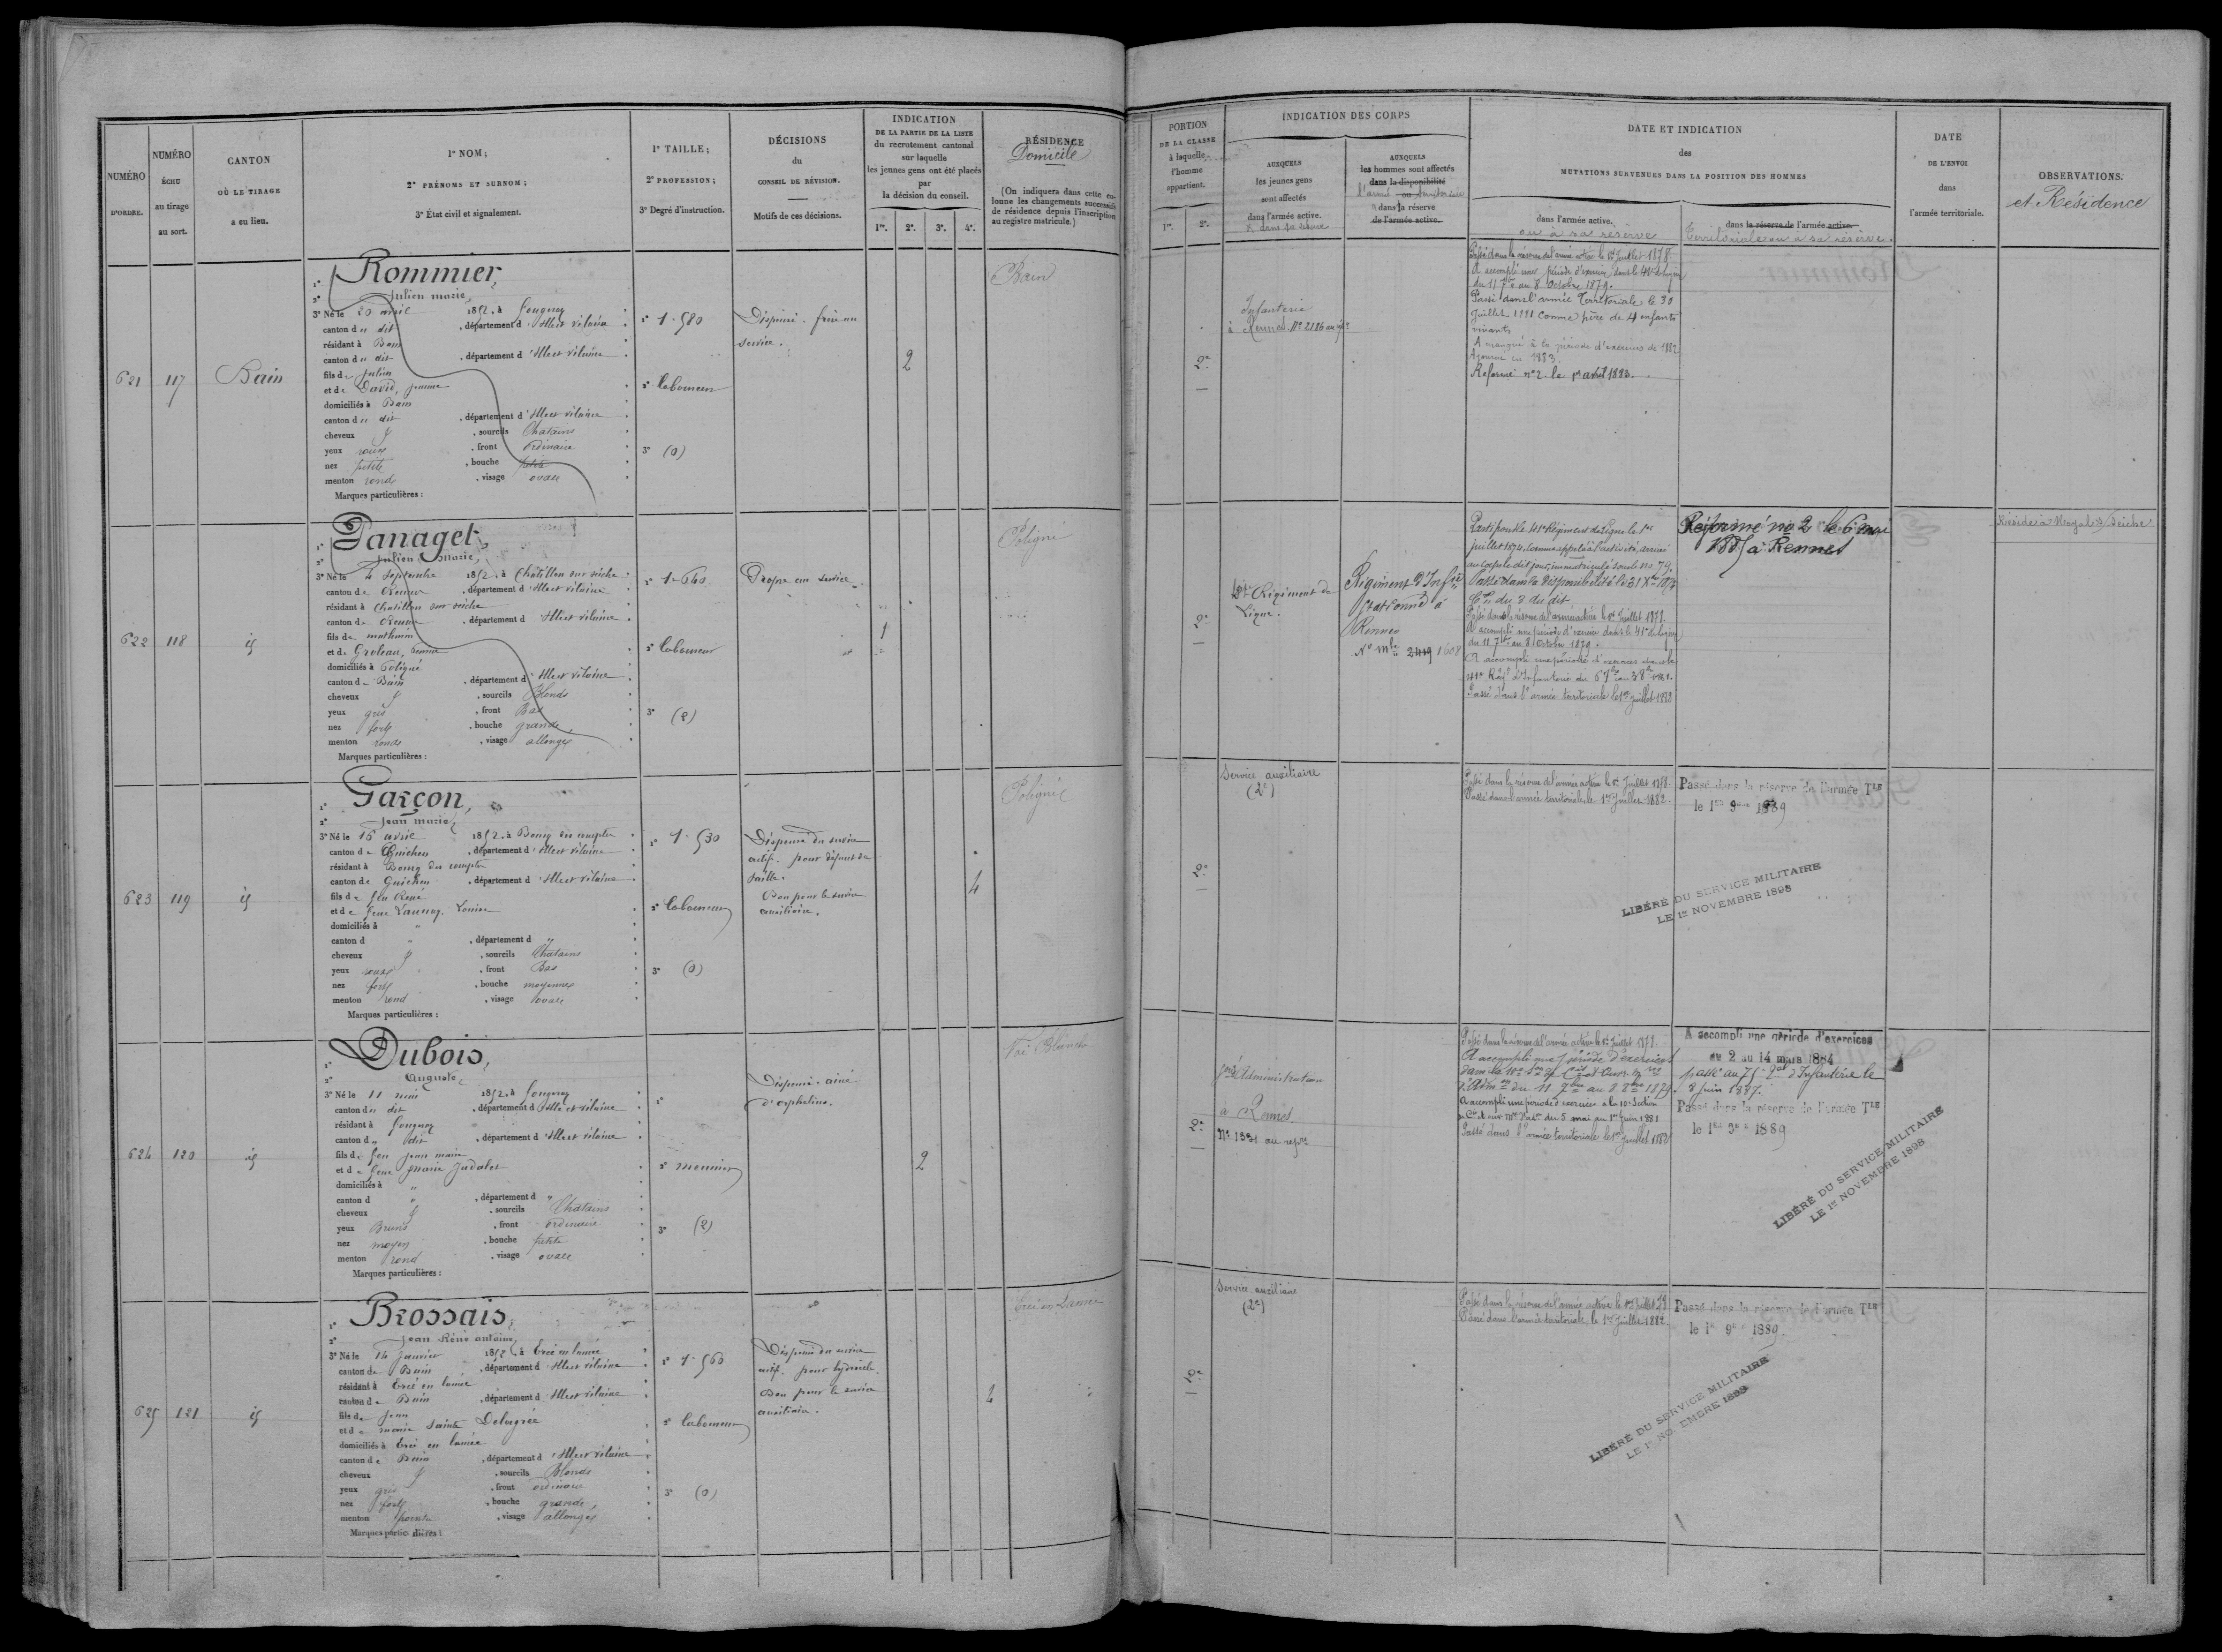 NUMÉRO
D'ORDRE.
NUMÉRO
ÉCHU
au tirage
au sort.
CANTON
OÙ LE TIRAGE
a eu lieu.
1° NOM;
2° PRÉNOMS ET SURNOM;
3° État civil et signalement.
1° TAILLE;
2° PROFESSION;
3° Degré d'instruction.
DÉCISIONS
du
CONSEIL DE RÉVISION.
Motifs de ces décisions.
INDICATION
DE LA PARTIE DE LA LISTE
du recrutement cantonal
sur laquelle
les jeunes gens ont été placés
par
la décision du conseil.
1re. 2e. 3e. 4e.
RÉSIDENCE
Domicile
(On indiquera dans cette co-
lonne les changements successifs
de résidence depuis l'inscription
au registre matricule.)
PORTION
DE LA CLASSE
à laquelle
l'homme
appartient.
1re. 2e.
INDICATION DES CORPS
AUXQUELS
les jeunes gens
sont affectés
dans l'armée active.
& dans sa réserve
AUXQUELS
les hommes sont affectés
dans la disponibilité
l'armée ou territoriale
dans la réserve
de l'armée active.
DATE ET INDICATION
des
MUTATIONS SURVENUES DANS LA POSITION DES HOMMES
dans l'armée active.
ou à sa réserve
dans la réserve de l'armée active.
Territoriale ou à sa réserve.
DATE
DE L'ENVOI
dans
l'armée territoriale.
OBSERVATIONS.
et Résidence
621 117 Bain
1° Rommier,
2° Julien marie,
3° Né le 20 avril 1852, à Fougeray
canton du dit, département d'Ille et vilaine
résidant à Bain
canton du dit, département d'Ille et vilaine
fils de Julien
et de David, Jeanne
domiciliés à Bain
canton du dit, département d'Ille et vilaine
cheveux &, sourcils Chatains
yeux roux, front ordinaire
nez petit, bouche petite
menton rond, visage ovale
Marques particulières:
1° 1.580
2° Laboureur
3° (0)
Dispensé. frère au
service.
2
Bain
2e
Infanterie
à Rennes. No 2186 au rép.re
Passé dans la réserve de l'armée active le 1er Juillet 1878.
A accompli une période d'exercices dans le 41e de ligne
du 11 7bre au 8 Octobre 1879.
Passé dans l'armée Territoriale le 30
Juillet 1881 comme père de 4 enfants
vivants
A manqué à la période d'exercices de 1882
Ajourné en 1883.
Réformé no 2 le 1er avril 1893.
622 118 id
1° Panaget,
2° Julien Marie,
3° Né le 4 Septembre 1852, à Châtillon sur seiche
canton de Rennes, département d'Ille et vilaine
résidant à Chatillon sur seiche
canton de Rennes, département d'Ille et vilaine
fils de mathurin
et de Groleau, Jeanne
domiciliés à Poligné
canton de Bain, département d'Ille et vilaine
cheveux &, sourcils Blonds
yeux gris, front Bas
nez fort, bouche grande
menton rond, visage allongé
Marques particulières:
1° 1.640
2° Laboureur
3° (2)
Propre au service
1
Poligné
2e
41e Régiment de
Ligne.
Régiment d'Inf.ie
stationné à
Rennes
No mle 2419 1608
Parti pour le 41e Régiment de Ligne le 1er
juillet 1874, comme appelé à l'activité, arrivé
au Corps le dit jour, immatriculé sous le no 79.
Passé dans la disponibilité le 31 Xbre 187
Con du 3 du dit
Passé dans la réserve de l'armée active le 1er Juillet 1878.
A accompli une période d'exercices dans le 41e de ligne
du 11 7bre au 8 Octobre 1879.
A accompli une période d'exercices dans le
41e Régt d'Infanterie du 6 7bre au 3 8bre 1881.
Passé dans l'armée territoriale le 1er juillet 1882
Réformé no 2 le 6 mai
1885 à Rennes
Réside à Noyal s/ Seiche
623 119 id
1° Garçon,
2° Jean marie,
3° Né le 15 avril 1852, à Bourg des comptes
canton de Guichen, département d'Ille et vilaine
résidant à Bourg des comptes
canton de Guichen, département d'Ille et vilaine
fils de feu René
et de feue Launay, Louise
domiciliés à "
canton d ", département d "
cheveux &, sourcils Chatains
yeux roux, front Bas
nez fort, bouche moyenne
menton rond, visage ovale
Marques particulières:
1° 1.530
2° Laboureur
3° (0)
Dispensé du service
actif. pour défaut de
taille.
Bon pour le service
auxiliaire.
4
Poligné
2e
Service auxiliaire
(2e)
Passé dans la réserve de l'armée active le 1er Juillet 1878.
Passé dans l'armée territoriale, le 1er Juillet 1882.
Passé dans la réserve de l'armée Tle
le 1er 9bre 1889
LIBÉRÉ DU SERVICE MILITAIRE
LE 1er NOVEMBRE 1898
624 120 id
1° Dubois,
2° Auguste,
3° Né le 11 mai 1852, à Fougeray
canton du dit, département d'Ille et vilaine
résidant à Fougeray
canton du dit, département d'Ille et vilaine
fils de feu Jean marie
et de feue Marie Judalet
domiciliés à "
canton d ", département d "
cheveux &, sourcils Chatains
yeux Bruns, front ordinaire
nez moyen, bouche petite
menton rond, visage ovale
Marques particulières:
1°
2° meunier
3° (2)
Dispensé. ainé
d'orphelins.
2
Noë Blanche
2e
Administration
à Rennes.
No 1331 au rép.re
Passé dans la réserve de l'armée active le 1er Juillet 1878.
A accompli une période d'exercices
d'Adm.on du 11 7bre au 8 8bre 1879.
A accompli une période d'exercices à la 10e Section
du 5 mai au 1er Juin 1881
Passé dans l'armée territoriale le 1er Juillet 1882
A accompli une période d'exercices
du 2 au 14 mars 1884
passé au 75e Rgt d'Infanterie le
8 Juin 1887.
Passé dans la réserve de l'armée Tle
le 1er 9bre 1889
LIBÉRÉ DU SERVICE MILITAIRE
LE 1er NOVEMBRE 1898
625 121 id
1° Brossais,
2° Jean René antoine,
3° Né le 14 Janvier 1852, à Ercé en lamée
canton de Bain, département d'Ille et vilaine
résidant à Ercé en lamée
canton de Bain, département d'Ille et vilaine
fils de Jean
et de marie sainte Delagrée
domiciliés à Ercé en lamée
canton de Bain, département d'Ille et vilaine
cheveux &, sourcils Blonds
yeux gris, front ordinaire
nez fort, bouche grande
menton pointu, visage allongé
Marques particulières:
1° 1.560
2° Laboureur
3° (0)
Dispensé du service
actif. pour hydrocèle.
Bon pour le service
auxiliaire.
4
Ercé en Lamée
2e
Service auxiliaire
(2e)
Passé dans la réserve de l'armée active le 1er Juillet 78
Passé dans l'armée territoriale, le 1er Juillet 1882.
Passé dans la réserve de l'armée Tle
le 1er 9bre 1889.
LIBÉRÉ DU SERVICE MILITAIRE
LE 1er NOVEMBRE 1898